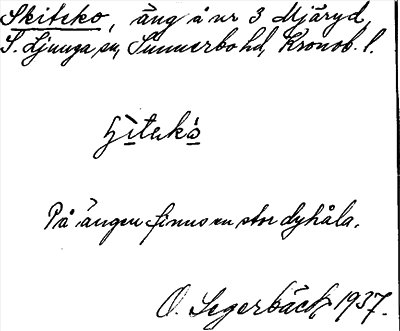 Skitsko, äng å nr 3 Mjäryd,
S. Ljunga sn, Sunnerbo hd, Kronob. l.
På ängen finns en stor dyhåla.
O. Segerbäck 1937.